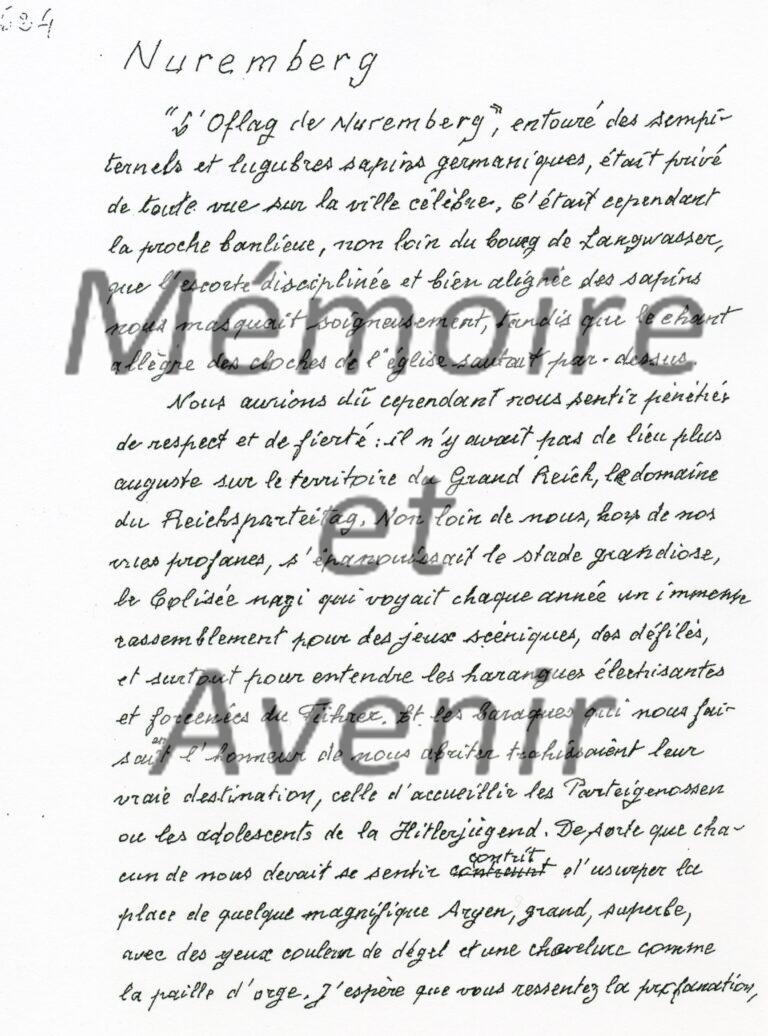 Nuremberg
"L'Oflag de Nuremberg", entouré des sempi-
ternels et lugubres sapins germaniques, était privé
de toute vue sur la ville célèbre. C'était cependant
la proche banlieue, non loin du bourg de Langwasser,
que l'escorte disciplinée et bien alignée des sapins
nous masquait soigneusement, tandis que le chant
allègre des cloches de l'église sautait par-dessus.
Nous aurions dû cependant nous sentir pénétrés
de respect et de fierté : il n'y avait pas de lieu plus
auguste sur le territoire du Grand Reich, le domaine
du Reichsparteitag. Non loin de nous, hors de nos
vues profanes, s'épanouissait le stade grandiose,
le Colisée nazi qui voyait chaque année un immense
rassemblement pour des jeux scéniques, des défilés,
et surtout pour entendre les harangues électrisantes
et forcenées du Führer. Et les baraques qui nous fai-
saient l'honneur de nous abriter trahissaient leur
vraie destination, celle d'accueillir les Parteigenossen
ou les adolescents de la Hitlerjügend. De sorte que cha-
cun de nous devait se sentir contrit d'usurper la
place de quelque magnifique Aryen, grand, superbe,
avec des yeux couleur de dégel et une chevelure comme
la paille d'orge. J'espère que vous ressentez la profanation,
Mémoire
et
Avenir